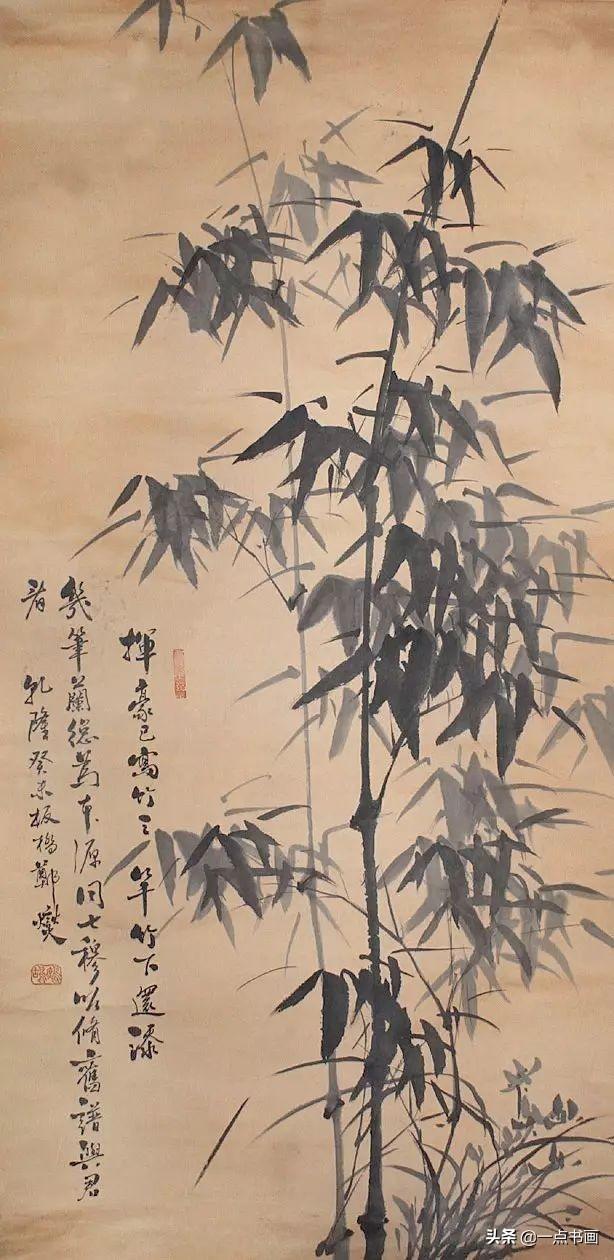 揮豪已寫竹三竿竹下還添
幾筆蘭總爲本源同七穆欲脩舊譜與君
看 乾隆癸未板橋鄭燮
头条 @一点书画